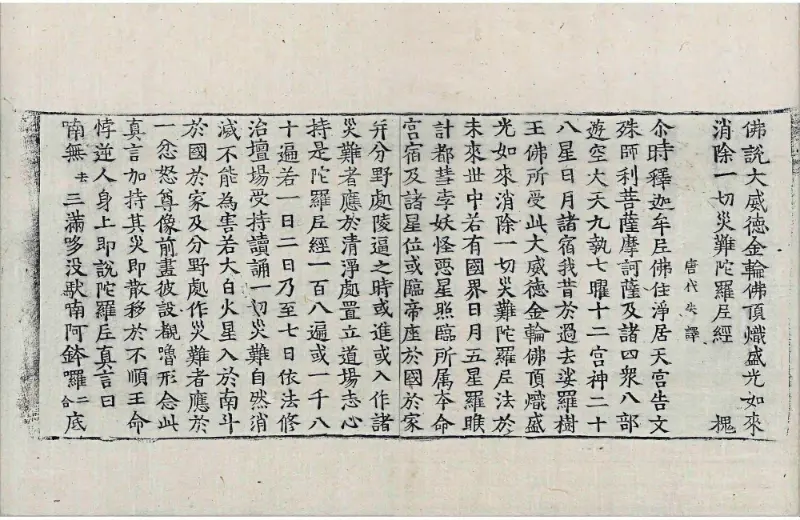 佛說大威德金輪佛頂熾盛光如來
消除一切災難陀羅尼經 槐
唐代失譯
尒時釋迦牟尼佛住淨居天宫告文
殊師利菩薩摩訶薩及諸四衆八部
遊空大天九執七曜十二宫神二十
八星日月諸宿我昔於過去娑羅樹
王佛所受此大威德金輪佛頂熾盛
光如來消除一切災難陀羅尼法於
未來世中若有國界日月五星羅睺
計都彗孛妖怪惡星照臨所属本命
宫宿及諸星位或臨帝座於國於家
并分野處陵逼之時或進或入作諸
災難者應於清淨處置立道場志心
持是陀羅尼經一百八遍或一千八
十遍若一日二日乃至七日依法修
治壇場受持讀誦一切災難自然消
滅不能為害若大白火星入於南斗
於國於家及分野處作災難者應於
一忿怒尊像前畫彼設覩嚕形念此
真言加持其災即散移於不順王命
悖逆人身上即說陀羅尼真言曰
喃無去三滿哆没馱喃阿鉢囉二合底